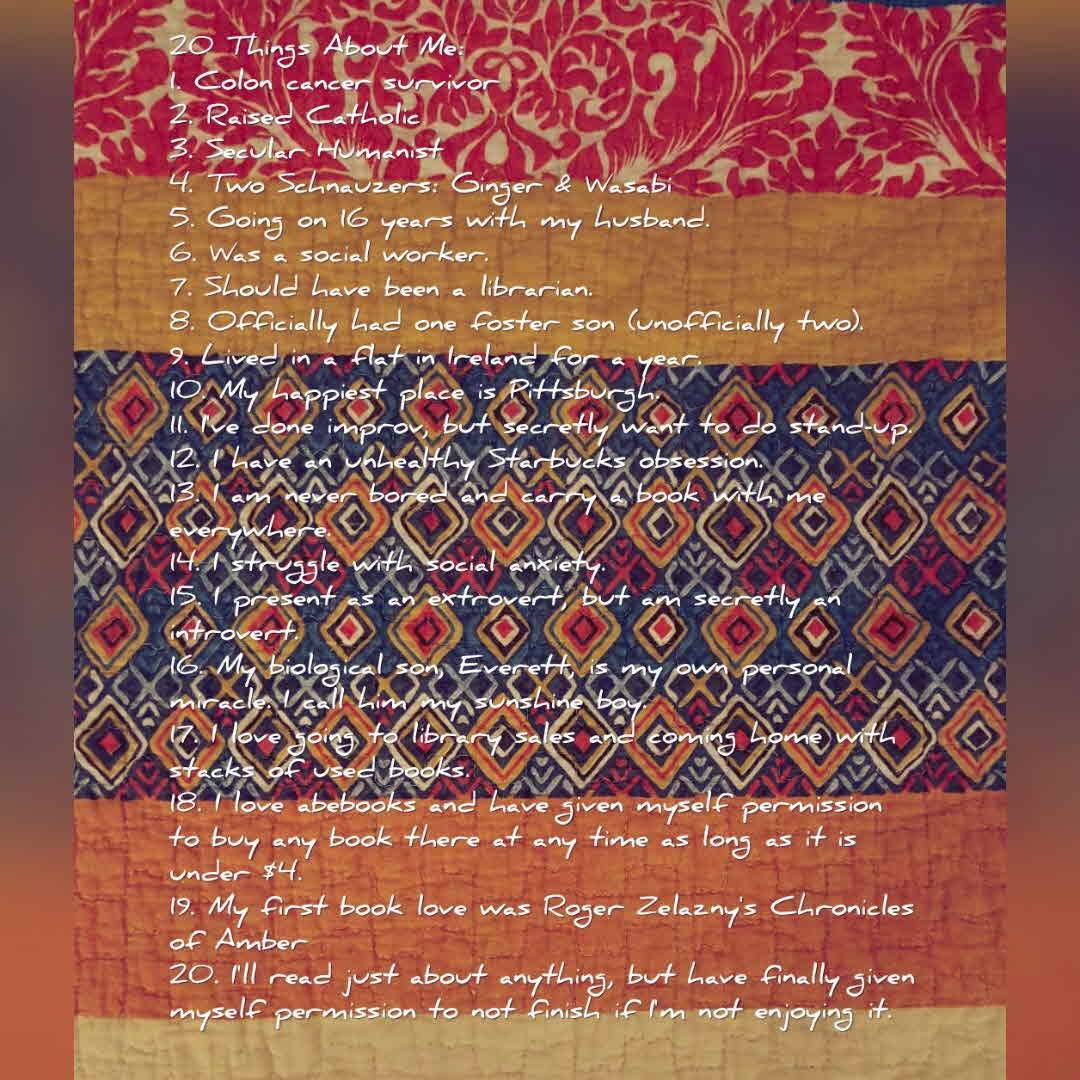 20 Things About Me:
1. Colon cancer survivor
2. Raised Catholic
3. Secular Humanist
4. Two Schnauzers: Ginger & Wasabi
5. Going on 16 years with my husband.
6. Was a social worker.
7. Should have been a librarian.
8. Officially had one foster son (unofficially two).
9. Lived in a flat in Ireland for a year.
10. My happiest place is Pittsburgh.
11. I've done improv, but secretly want to do stand-up.
12. I have an unhealthy Starbucks obsession.
13. I am never bored and carry a book with me
everywhere.
14. I struggle with social anxiety.
15. I present as an extrovert, but am secretly an
introvert.
16. My biological son, Everett, is my own personal
miracle. I call him my sunshine boy.
17. I love going to library sales and coming home with
stacks of used books.
18. I love abebooks and have given myself permission
to buy any book there at any time as long as it is
under $4.
19. My first book love was Roger Zelazny's Chronicles
of Amber
20. I'll read just about anything, but have finally given
myself permission to not finish if I'm not enjoying it.